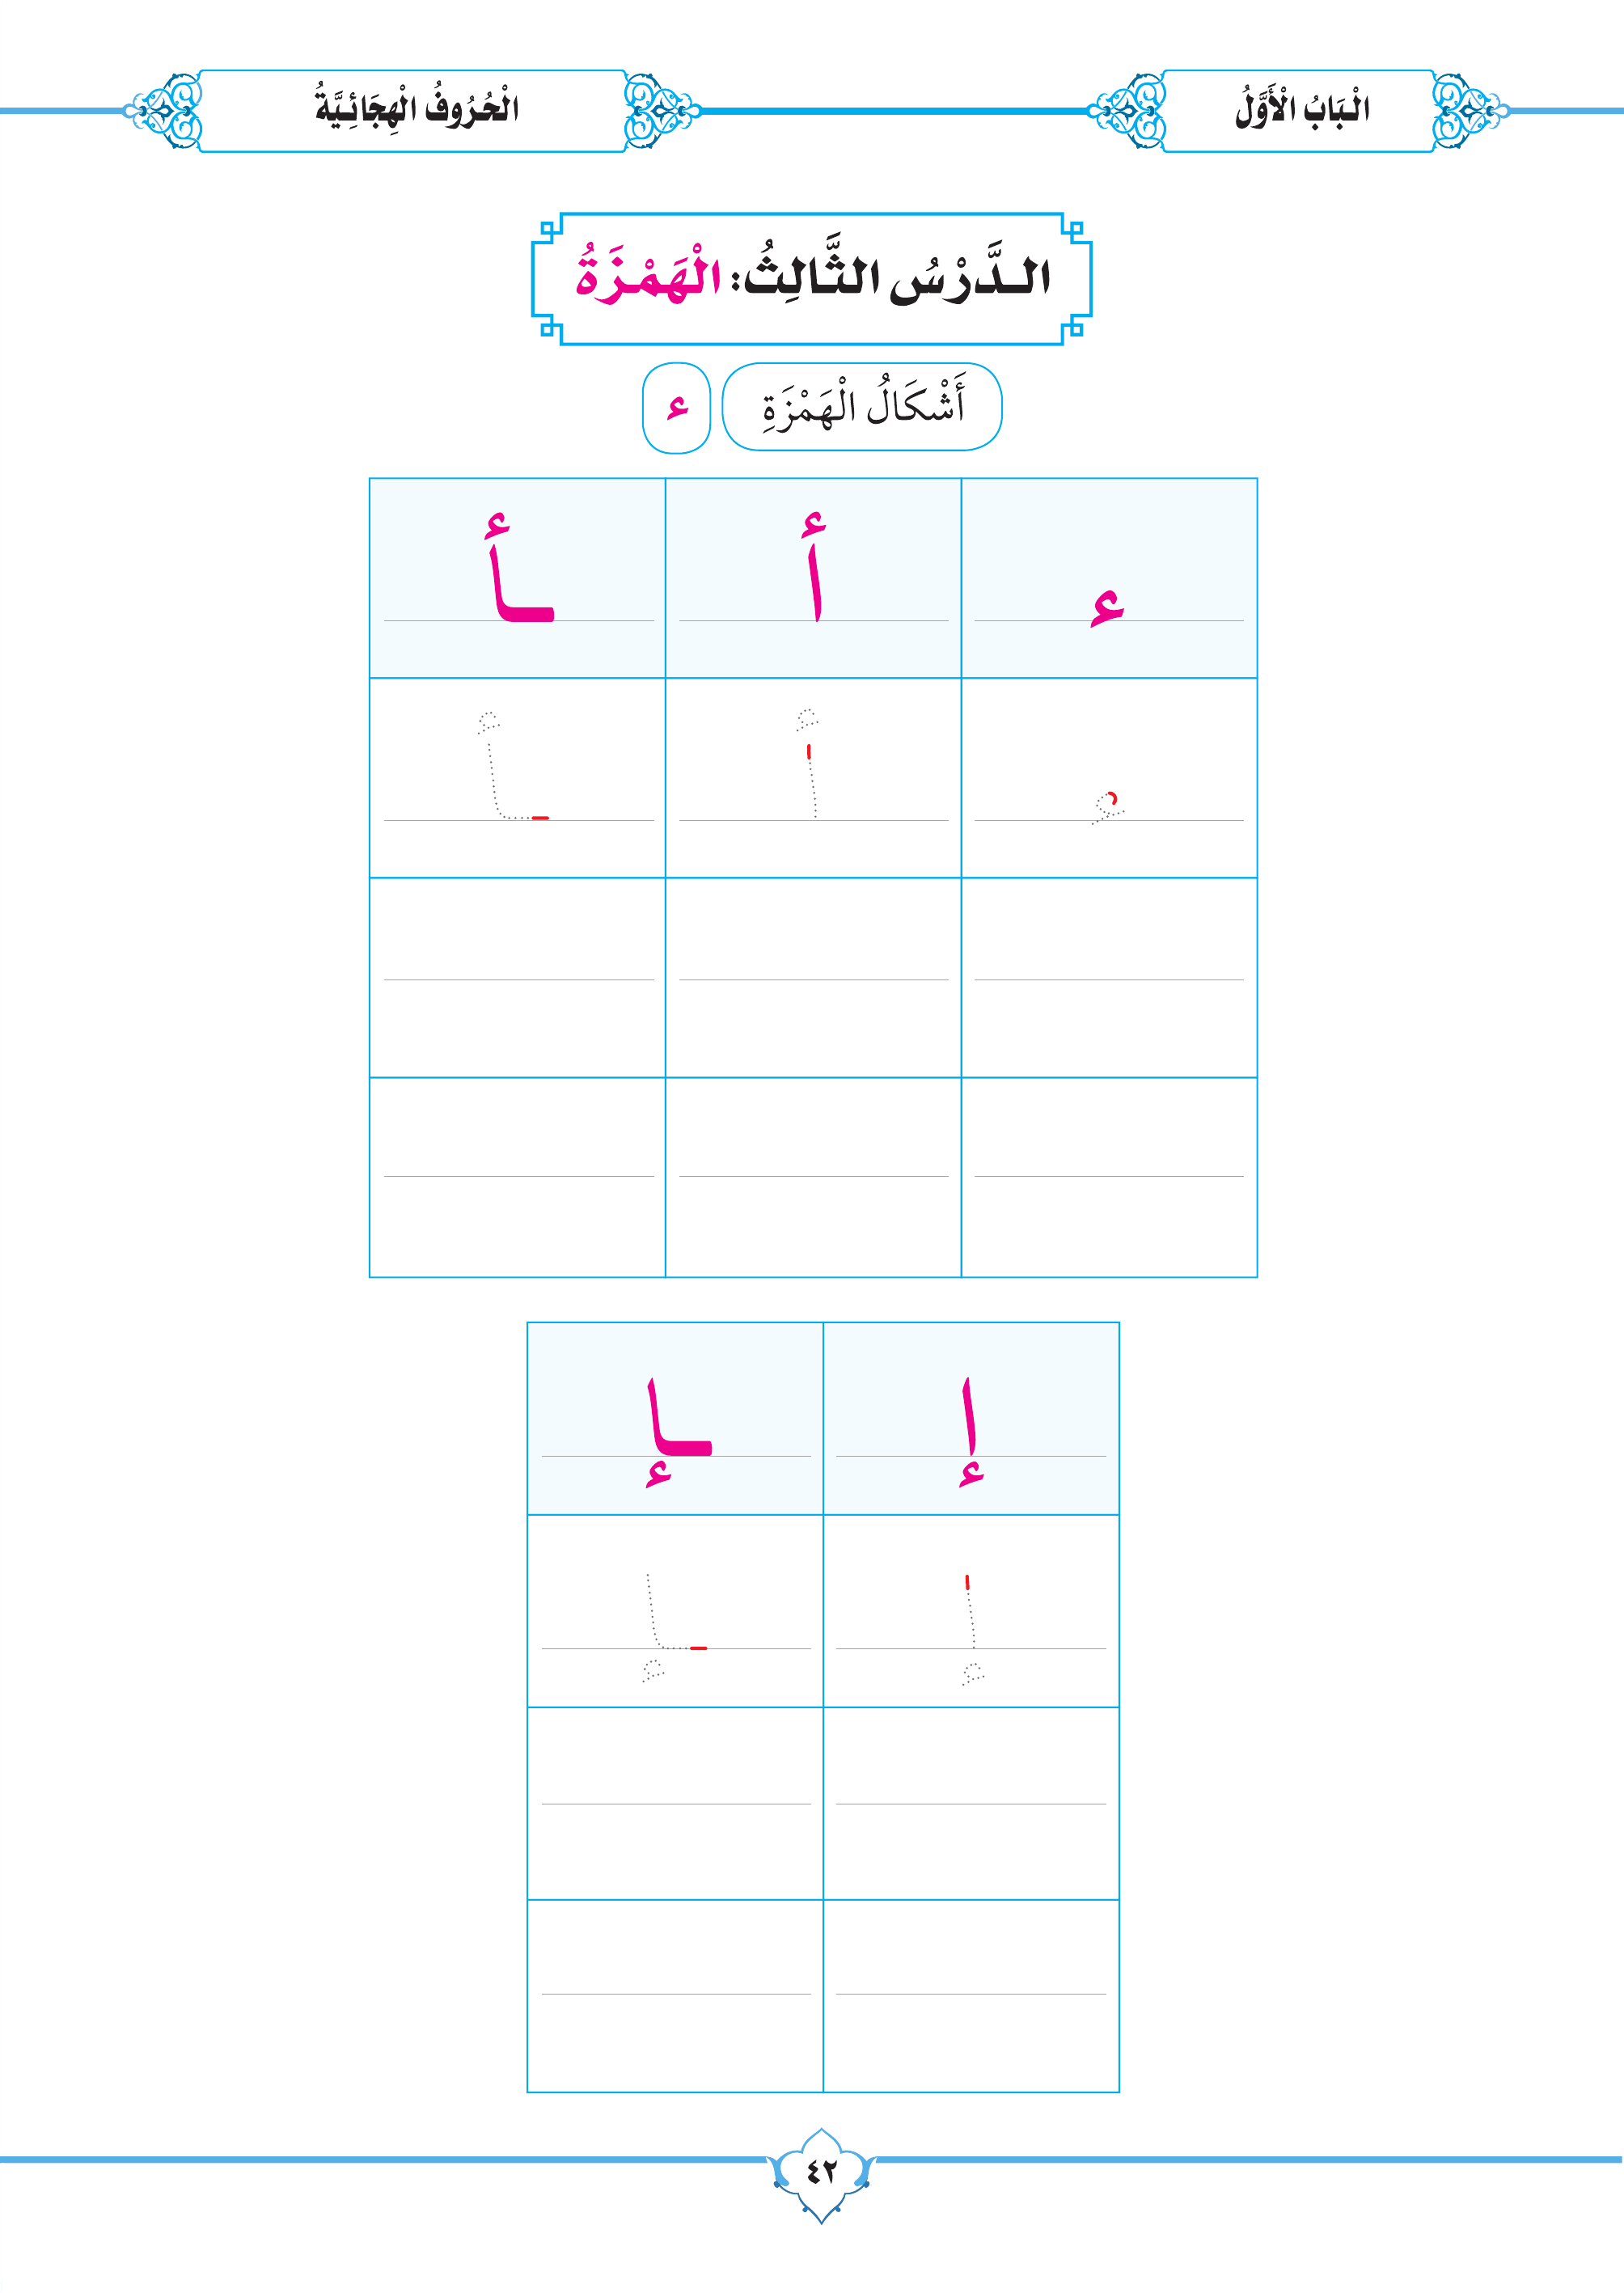 الْبَابُ الْأَوَّلُ
الْحُرُوفُ الْهِجَائِيَّةُ
الـدَّرْسُ الثَّالِثُ: الْهَمْزَةُ
أَشْكَالُ الْهَمْزَةِ ء
ء أ ـأ
ء أ ـأ
إ ـإ
إ ـإ
٤٢